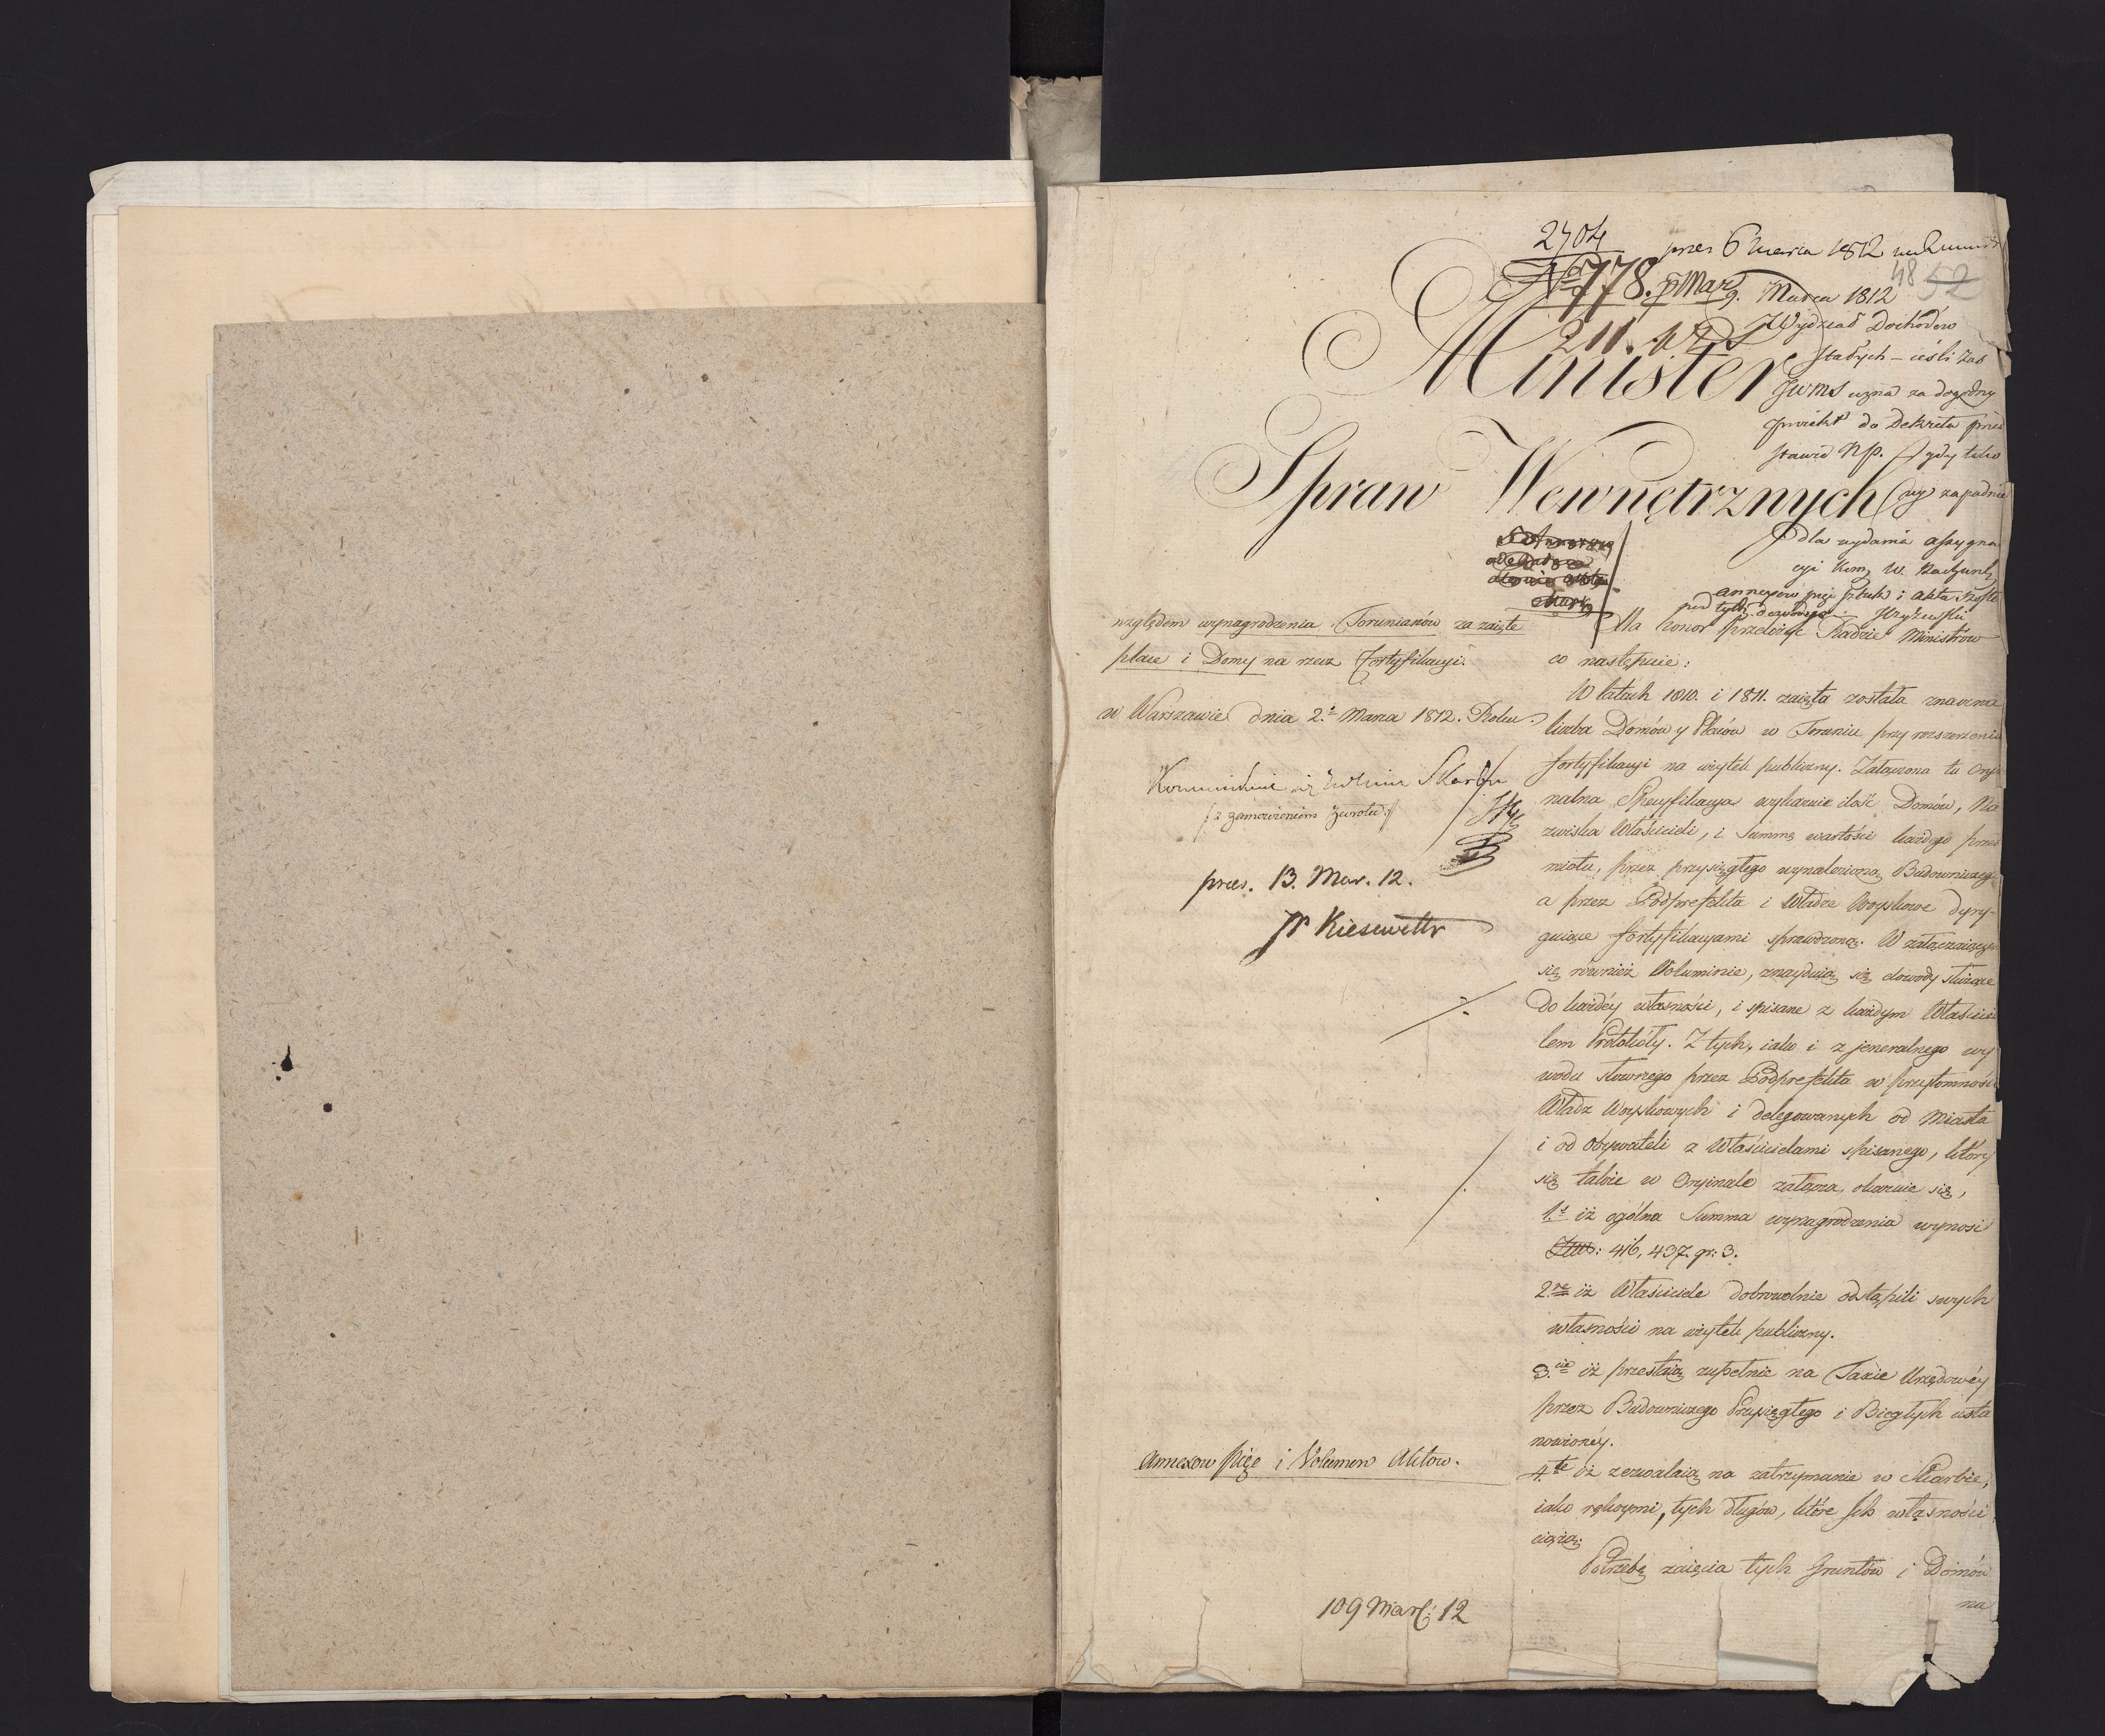 2704
pres 6 Marca 1812
No 778. p Mar
48 52
9. Marca 1812
211. 12
Wydział Dochodów
stałych – ieśli zaś
JWMS uzna za dogodny
proiekt do Dekretu przed
stawić NP. gdy takowy zapadnie
dla wydania assygna
cyi Kom. W. Rachunk.
Minister
Spraw Wewnętrznych
względem wynagrodzenia Torunianów za zaięte
place i Domy na rzecz Fortyfikacyi.
w Warszawie dnia 2. Marca 1812. Roku.
Skarbu
/: z zamówieniem zwrotu :/
pres. 13. Mar. 12.
Kiesewetter
Annexow pięć i Volumen Aktow.
109 Mart: 12
Ma honor przełożyć Radzie Ministrów
co następuie:
W latach 1810. i 1811. zaięta została znaczna
liczba Domów y Placów w Toruniu przy rozszerzeniu
fortyfikacyi na użytek publiczny. Załączona tu Oryi
nalna Specyfikacya wykazuie ilość Domów, Na
zwiska Właścicieli, i Summę wartości każdego przed
miotu, przez przysięgłego wynalezioną Budowniczego
a przez Podprefekta i Władze Woyskowe dyry-
guiące fortyfikacyami sprawdzoną. W załączaiącym
się również Voluminie, znayduią się dowody służące
do każdéy własności, i spisane z każdym Właścicie
lem Protokóły. Z tych, iako i z jeneralnego wy
wodu słownego przez Podprefekta w przytomności
Władz Woyskowych i delegowanych od Miasta
i od Obywateli z Właścicielami spisanego, który
się także w Oryinale załącza, okazuie się,
1. iż ogólna Summa wynagrodzenia wynosi
416,437. gr: 3.
2re iż Właściciele dobrowolnie odstąpili swych
własności na użytek publiczny.
3cie iż przestaią zupełnie na Taxie Urzędowéy
przez Budowniczego Przysięgłego i Biegłych usta
nowionéy.
4te iż zezwalaią na zatrzymanie w Skarbie,
iako rękoymi, tych długów, które Ich własności
ciążą.
Potrzebę zaięcia tych Gruntów i Domów
na